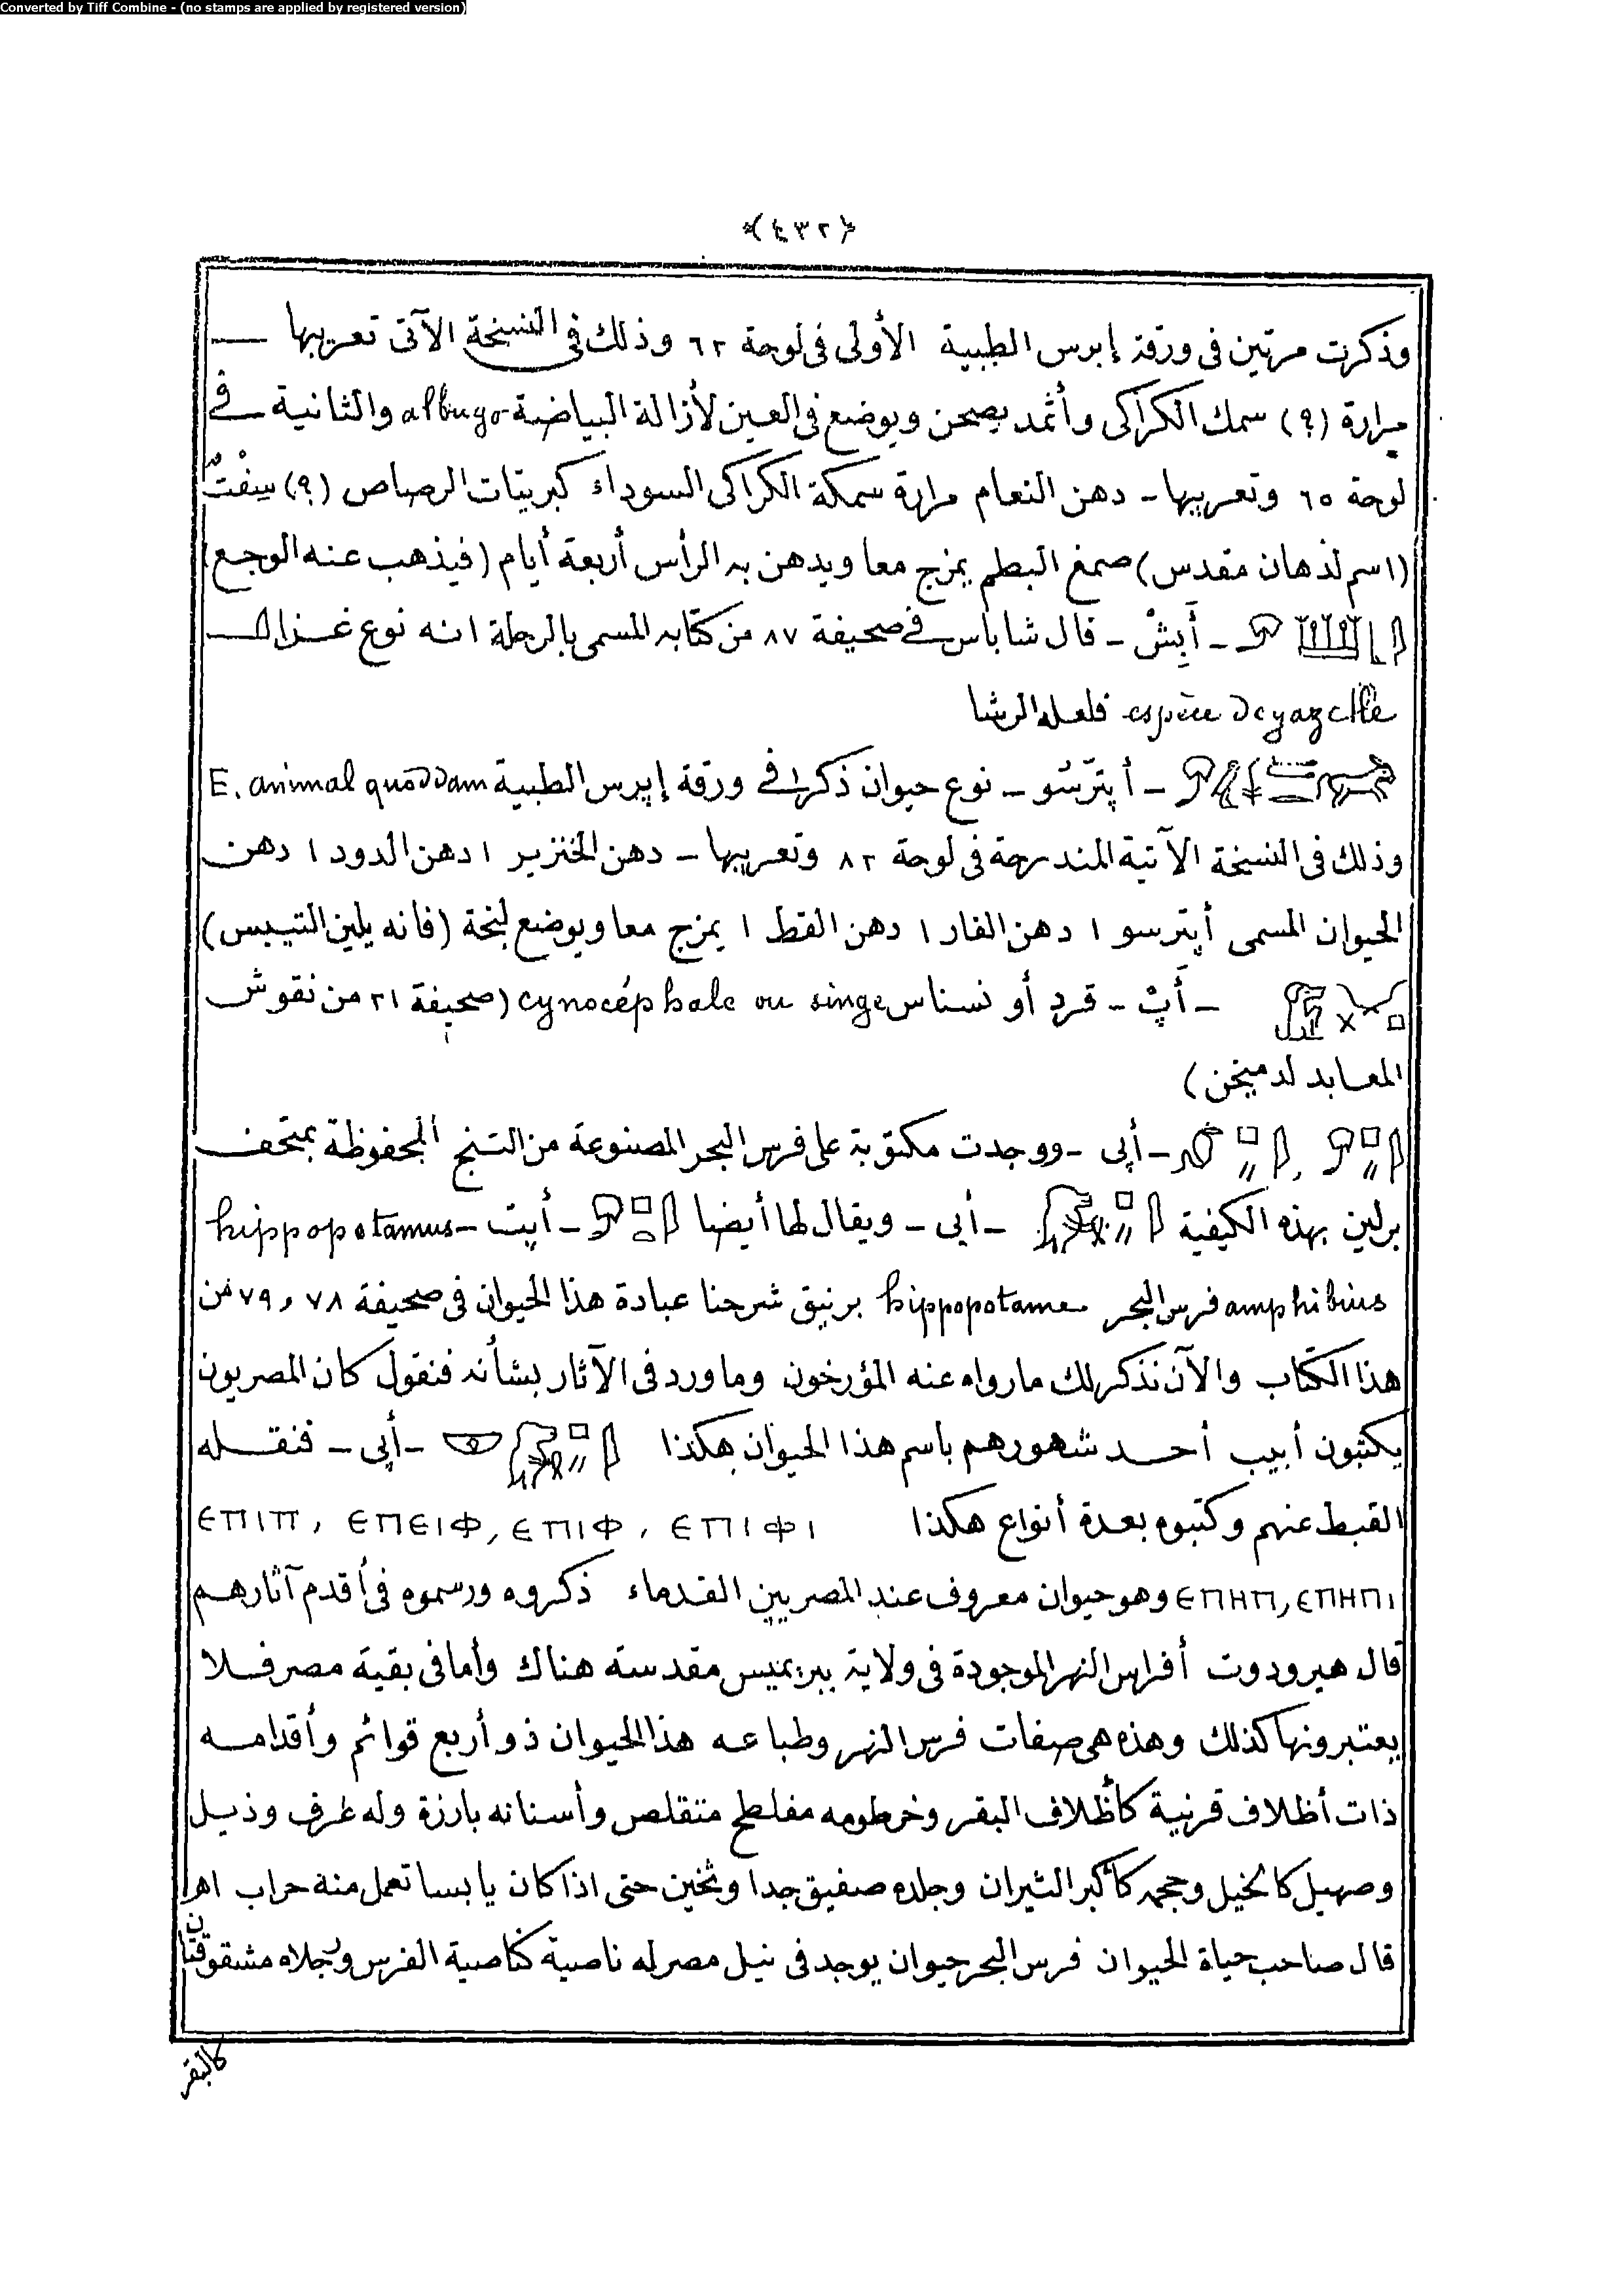 Converted by Tiff Combine - (no stamps are applied by registered version)
﴿٤٣٢﴾
وذكرت مرتين فى ورقة إبرس الطبية الأولى فى لوحة ٦٢ وذلك فى النسخة الآتى تعريبها —
مرارة (؟) سمك الكراكى وأثمد يصحن ويوضع فى العين لأزالة البياضة albugo والثانية فى
لوحة ٦٥ وتعريبها - دهن النعام مرارة سمكة الكراكى السوداء كبريتات الرصاص (؟) سِفْتٌ
(اسم لدهان مقدس) صمغ البطم يمزج معا ويدهن به الرأس أربعة أيام (فيذهب عنه الوجع)
- أَبِشْ - قال شاباس فى صحيفة ٨٧ من كتابه المسمى بالرحلة انه نوع غزال
espèce de gazelle فلعله الرشا
- أپترسُو - نوع حيوان ذكر فى ورقة إبرس الطبية E. animal quoddam
وذلك فى النسخة الآتية المندرجة فى لوحة ٨٢ وتعريبها - دهن الخنزير ١ دهن الدود ١ دهن
الحيوان المسمى أپترسو ١ دهن الفار ١ دهن القط ١ يمزج معا ويوضع لبخة (فانه يلين التيبس)
- أَپْ - قرد أو نسناس cynocéphale ou singe (صحيفة ٢١ من نقوش
المعابد لدميخن)
- أپى - ووجدت مكتوبة على فرس البحر المصنوعة من التبخ المحفوظة بمتحف
برلين بهذه الكيفية - أپى - ويقال لها أيضا - أپت - hippopotamus
amphibius فرس البحر hippopotame برنيق شرحنا عبادة هذا الحيوان فى صحيفة ٧٨ و ٧٩ من
هذا الكتاب والآن نذكر لك مارواه عنه المؤرخون وماورد فى الآثار بشأنه فنقول كان المصريون
يكتبون أبيب أحد شهورهم باسم هذا الحيوان هكذا - أپى - فنقله
القبط عنهم وكتبوه بعدة أنواع هكذا ⲉⲡⲓⲫⲓ , ⲉⲡⲓⲫ , ⲉⲡⲉⲓⲫ , ⲉⲡⲓⲡ
ⲉⲡⲏⲡ, ⲉⲡⲏⲡⲓ وهو حيوان معروف عند المصريين القدماء ذكروه ورسموه فى أقدم آثارهم
قال هيرودوت أفراس النهر الموجودة فى ولاية ببريميس مقدسة هناك وأما فى بقية مصر فلا
يعتبرونها كذلك وهذه هى صفات فرس النهر وطباعه هذا الحيوان ذو أربع قوائم وأقدامه
ذات أظلاف قرنية كأظلاف البقر وخرطومه مفلطح متقلص وأسنانه بارزة وله عرف وذيل
وصهيل كالخيل وحجمه كأكبر الثيران وجلده صفيق جدا وثخين حتى اذا كان يابسا تعمل منه حراب اهـ
قال صاحب حياة الحيوان فرس البحر حيوان يوجد فى نيل مصر له ناصية كناصية الفرس ورجلاه مشقوقتان
كالبقر